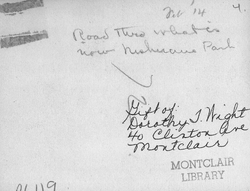 14
4.
Road thru what is
now Park
Gift of:
Dorothy T. Wight
40 Clinton Ave
Montclair
MONTCLAIR
LIBRARY